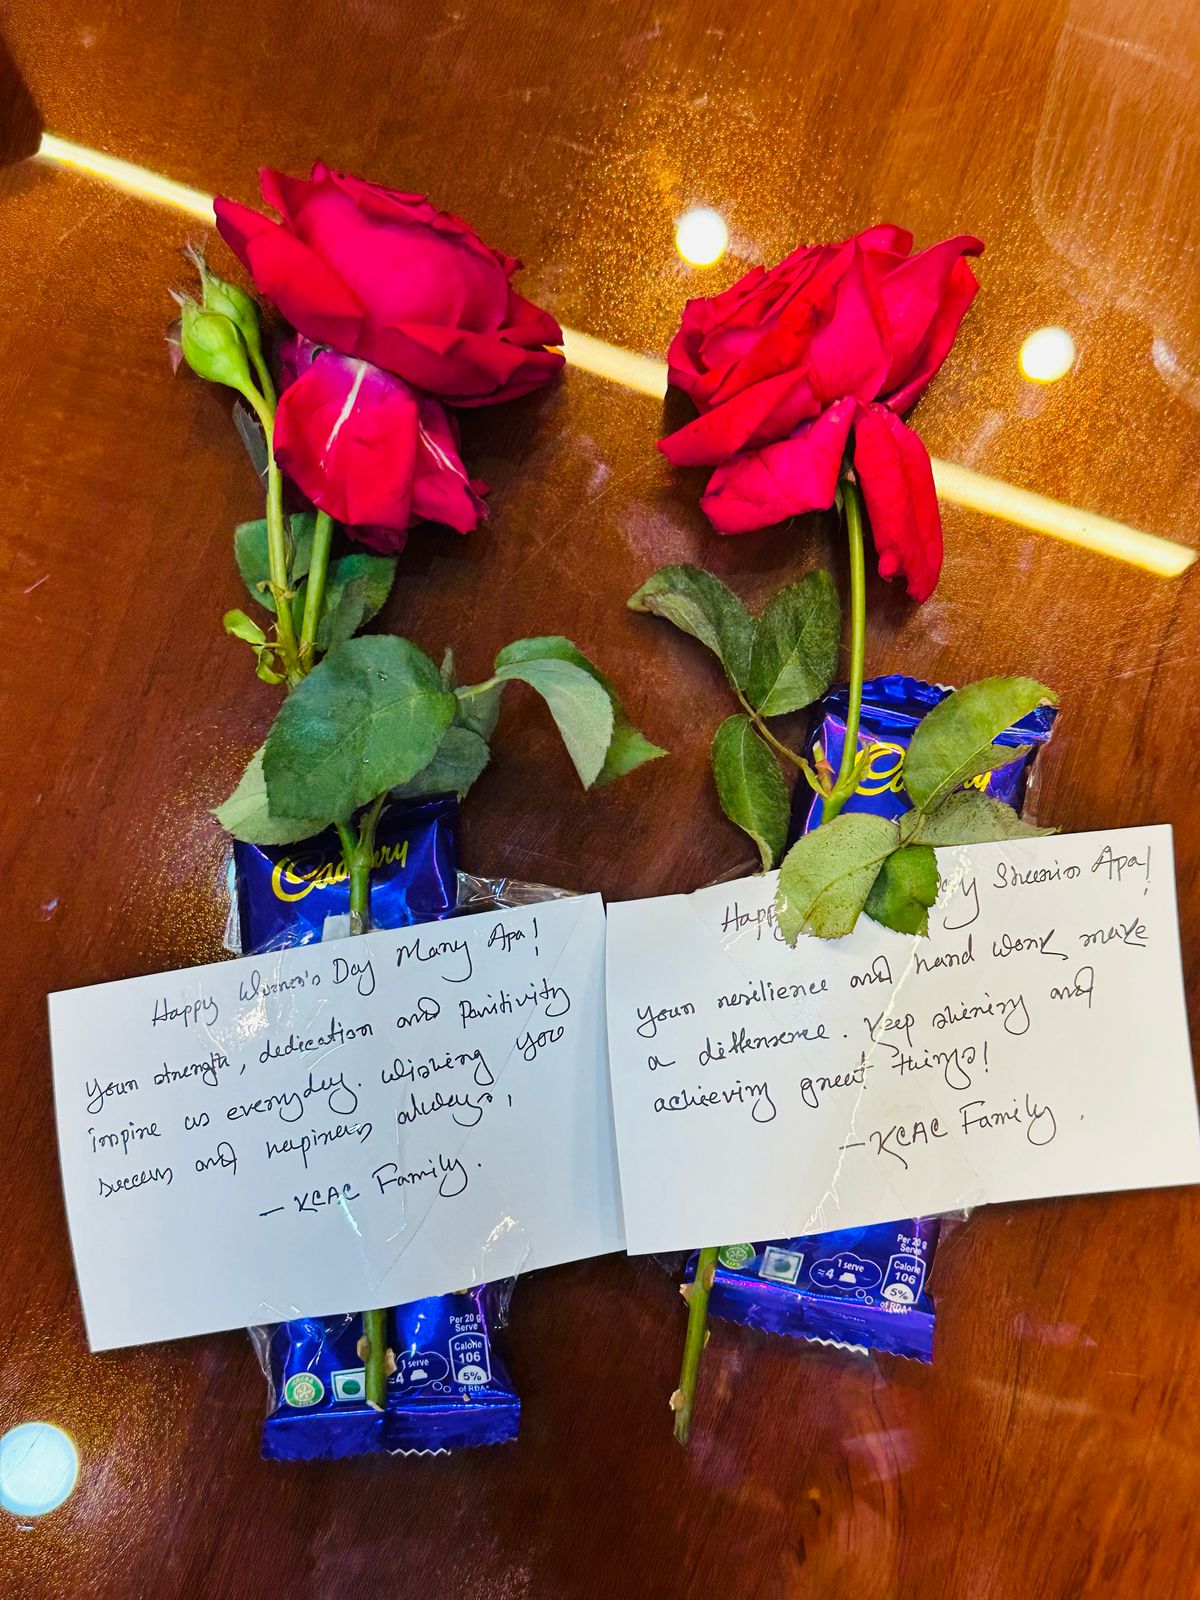 Cadbury
Happy Women's Day Many Apa!
Your strength, dedication and Positivity
inspire us everyday. Wishing you
success and hapiness always,
— KCAC Family.
Per 20 g
Serve
Calorie
106
5%
of RDA*
1 serve
=4
Cadbury
Happy Apa!
Your resilience and hard work make
a difference. Keep shining and
achieving great things!
— KCAC Family.
Per 20 g
Serve
Calorie
106
5%
of RDA*
1 serve
=4